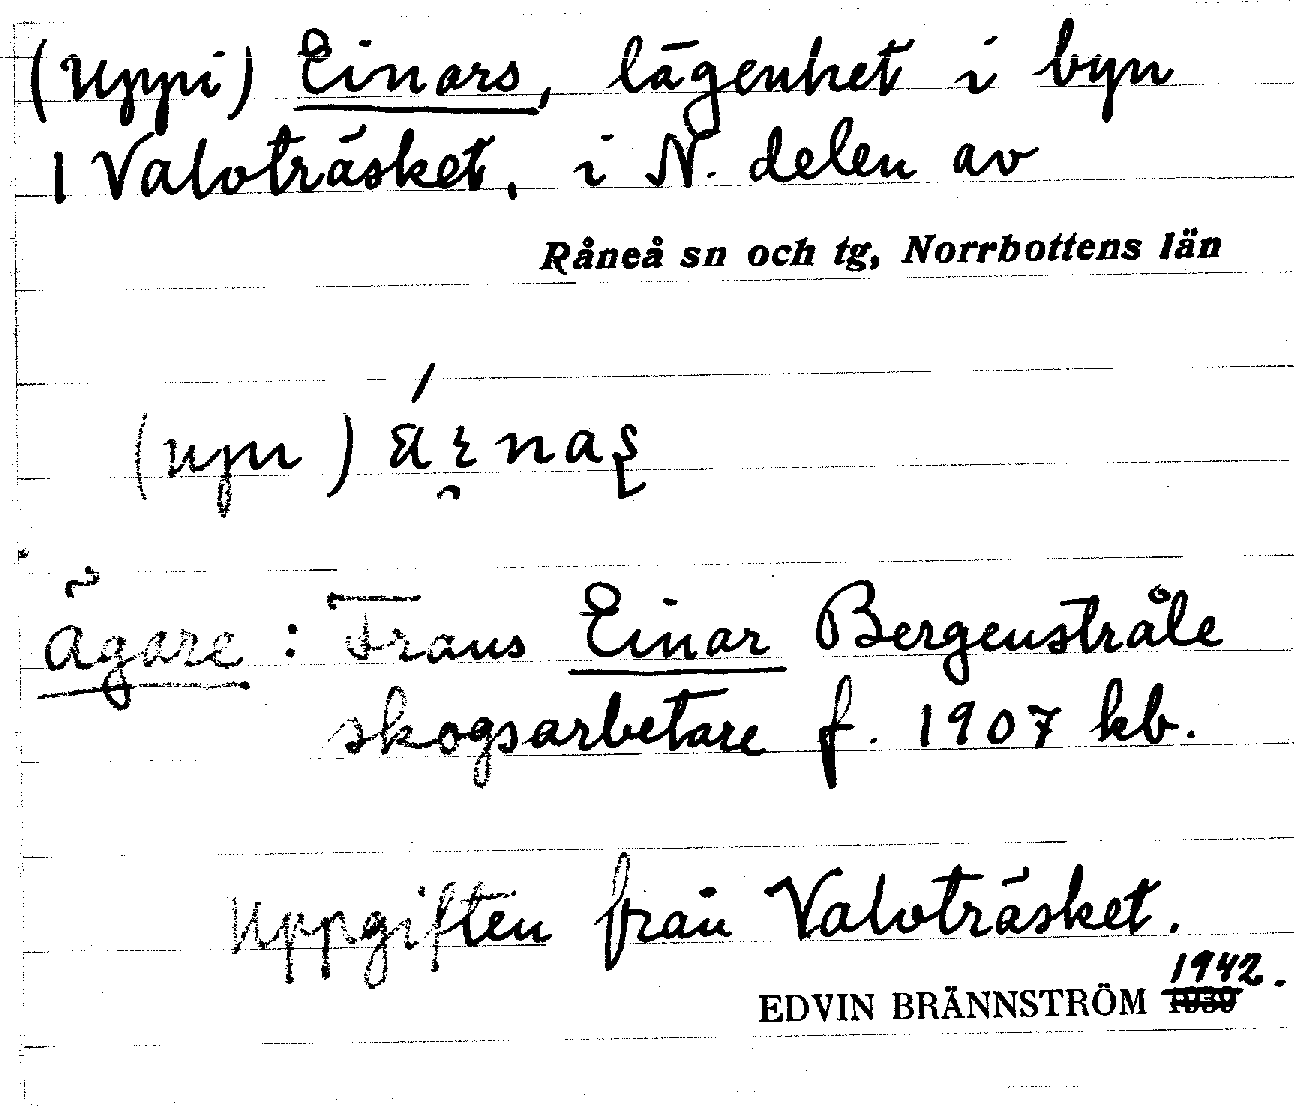 (uppi) Einars, lägenhet i byn
| Valvträsket, i N. delen av
Råneå sn och tg, Norrbottens län
Ägare: Frans Einar Bergenstråle
skogsarbetare f. 1907 kb.
Uppgiften från Valvträsket.
1942.
EDVIN BRÄNNSTRÖM 1939